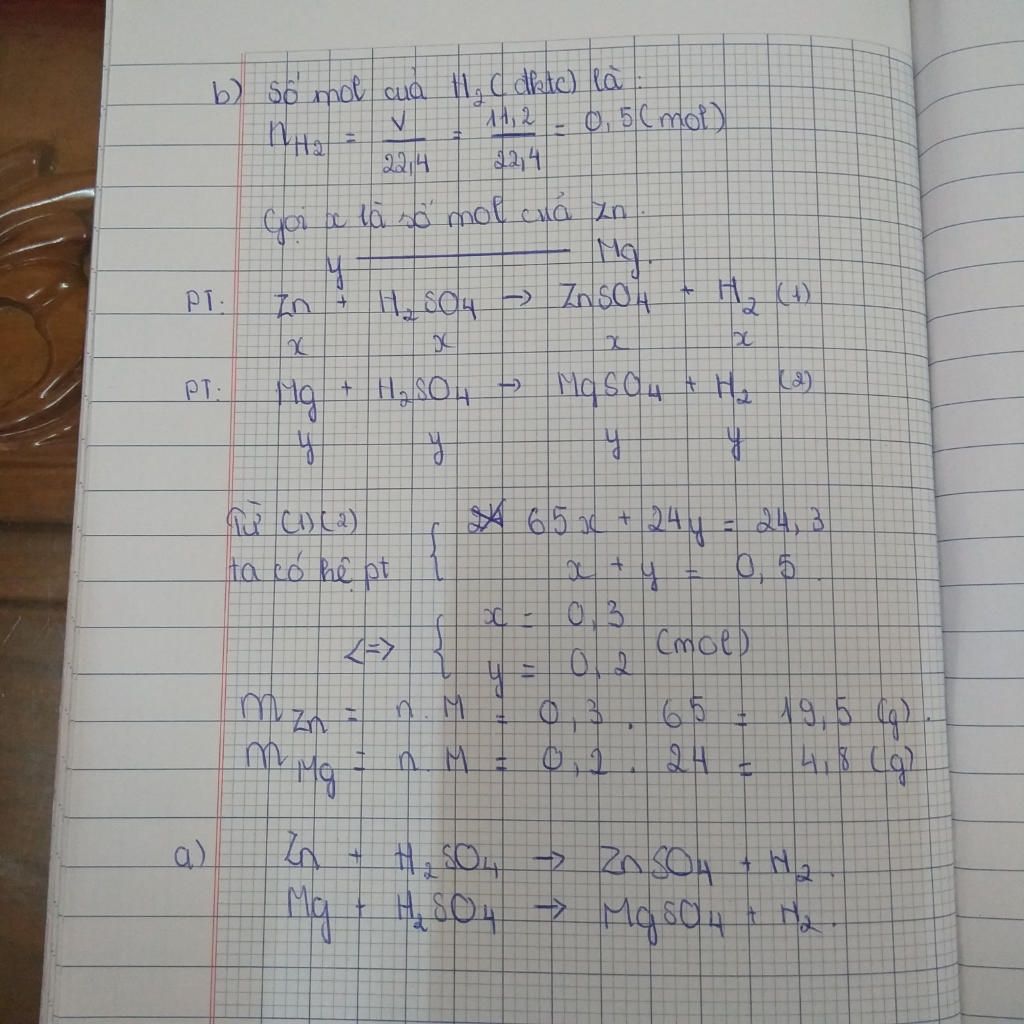 b) Số mol của H₂ (đktc) là:
n H₂ = V/22,4 = 11,2/22,4 = 0,5 (mol)
Gọi x là số mol của Zn.
y ———— Mg.
PT: Zn + H₂SO₄ → ZnSO₄ + H₂ (1)
x x x x
PT: Mg + H₂SO₄ → MgSO₄ + H₂ (2)
y y y y
Từ (1)(2) { 65x + 24y = 24,3
ta có hệ pt x + y = 0,5
<=> { x = 0,3
y = 0,2 (mol)
m Zn = n.M = 0,3 . 65 = 19,5 (g).
m Mg = n.M = 0,2 . 24 = 4,8 (g)
a) Zn + H₂SO₄ → ZnSO₄ + H₂.
Mg + H₂SO₄ → MgSO₄ + H₂.